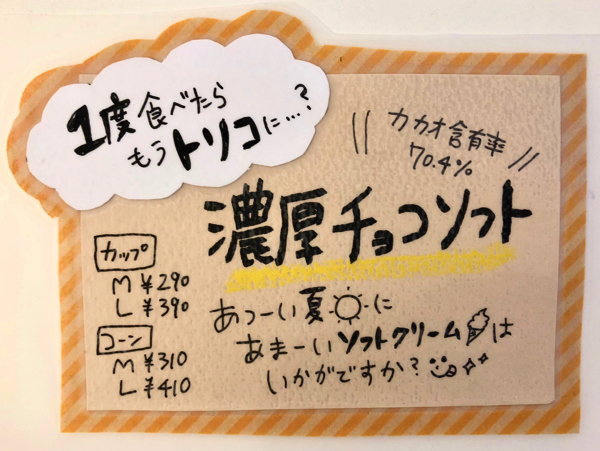 1度食べたら
もうトリコに…?
カカオ含有率
70.4%
濃厚チョコソフト
カップ
M ¥290
L ¥390
コーン
M ¥310
L ¥410
あつーい夏に
あまーいソフトクリームは
いかがですか?